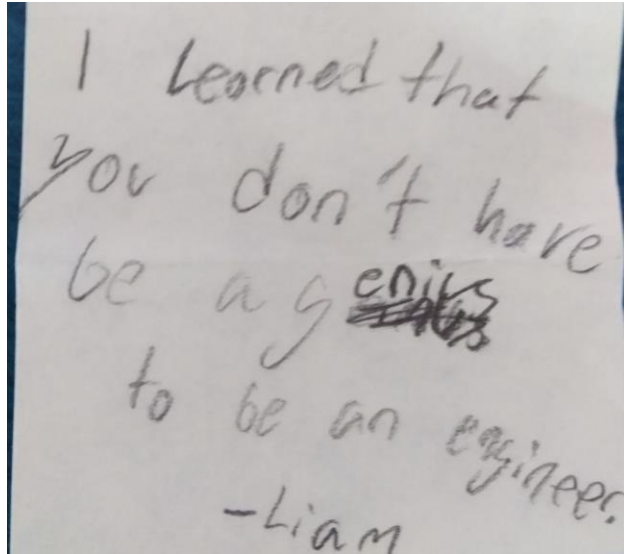 I learned that
you don't have
be a genius
to be an engineer.
-Liam